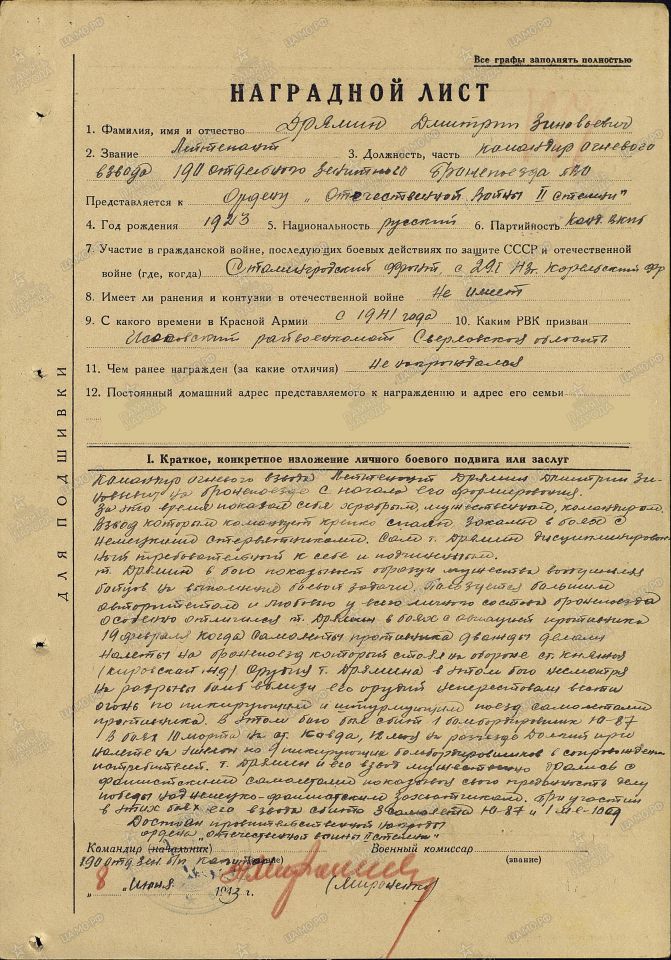 Все графы заполнять полностью
НАГРАДНОЙ ЛИСТ
1. Фамилия, имя и отчество Дрямин Дмитрий Зиновьевич
2. Звание Лейтенант 3. Должность, часть командир огневого
взвода 190 отдельного зенитного бронепоезда ПВО
Представляется к Ордену „Отечественной войны II степени"
4. Год рождения 1923 5. Национальность русский 6. Партийность канд. ВКПб
7. Участие в гражданской войне, последующих боевых действиях по защите СССР и отечественной
войне (где, когда) Сталинградский фронт, с Карельский фр
8. Имеет ли ранения и контузии в отечественной войне Не имеет
9. С какого времени в Красной Армии с 1941 года 10. Каким РВК призван
райвоенкомат Свердловская область
11. Чем ранее награжден (за какие отличия) Не награждался
12. Постоянный домашний адрес представляемого к награждению и адрес его семьи
I. Краткое, конкретное изложение личного боевого подвига или заслуг
Командир огневого взвода Лейтенант Дрямин Дмитрий Зи-
новьевич на бронепоезде с начала его формирования.
За это время показал себя храбрым, мужественным, командиром.
Взвод которым командует крепко спаян. Закален в боях с
немецкими стервятниками. Сам т. Дрямин дисциплинирован-
ный требовательный к себе и подчиненным.
т. Дрямин в бою показывает образцы мужества воодушевляя
бойцов на выполнение боевой задачи. Пользуется большим
авторитетом и любовью у всего личного состава бронепоезда
Особенно отличился т. Дрямин в боях с авиацией противника
19 февраля когда самолеты противника дважды делали
налеты на бронепоезд который стоял на обороне ст. Княжья
(кировская жд) Орудия т. Дрямина в этом бою несмотря
на разрывы бомб вблизи его орудий непереставали вести
огонь по пикирующим и штурмующим поезд самолетам
противника. В этом бою был сбит 1 бомбардировщик Ю-87
В боях 10 марта на ст. Ковда, 12 мая на разъезде при
налете на эшелон по 9 пикирующих бомбардировщиков в сопровождении
истребителей. т. Дрямин и его взвод мужественно дрались с
фашистскими самолетами показывая свою преданность делу
победы над немецко-фашистским захватчикам. При участии
в этих боях его взвода сбито 3 самолета Ю-87 и 1 Ме-109
Достоин правительственной награды
ордена „отечественной войны II степени"
Командир (начальник) Военный комиссар
190 отд. зен. б/п капитан (звание) (звание)
(Мироненко)
„8" июня 1943 г.
ДЛЯ ПОДШИВКИ
ЦАМО.РФ